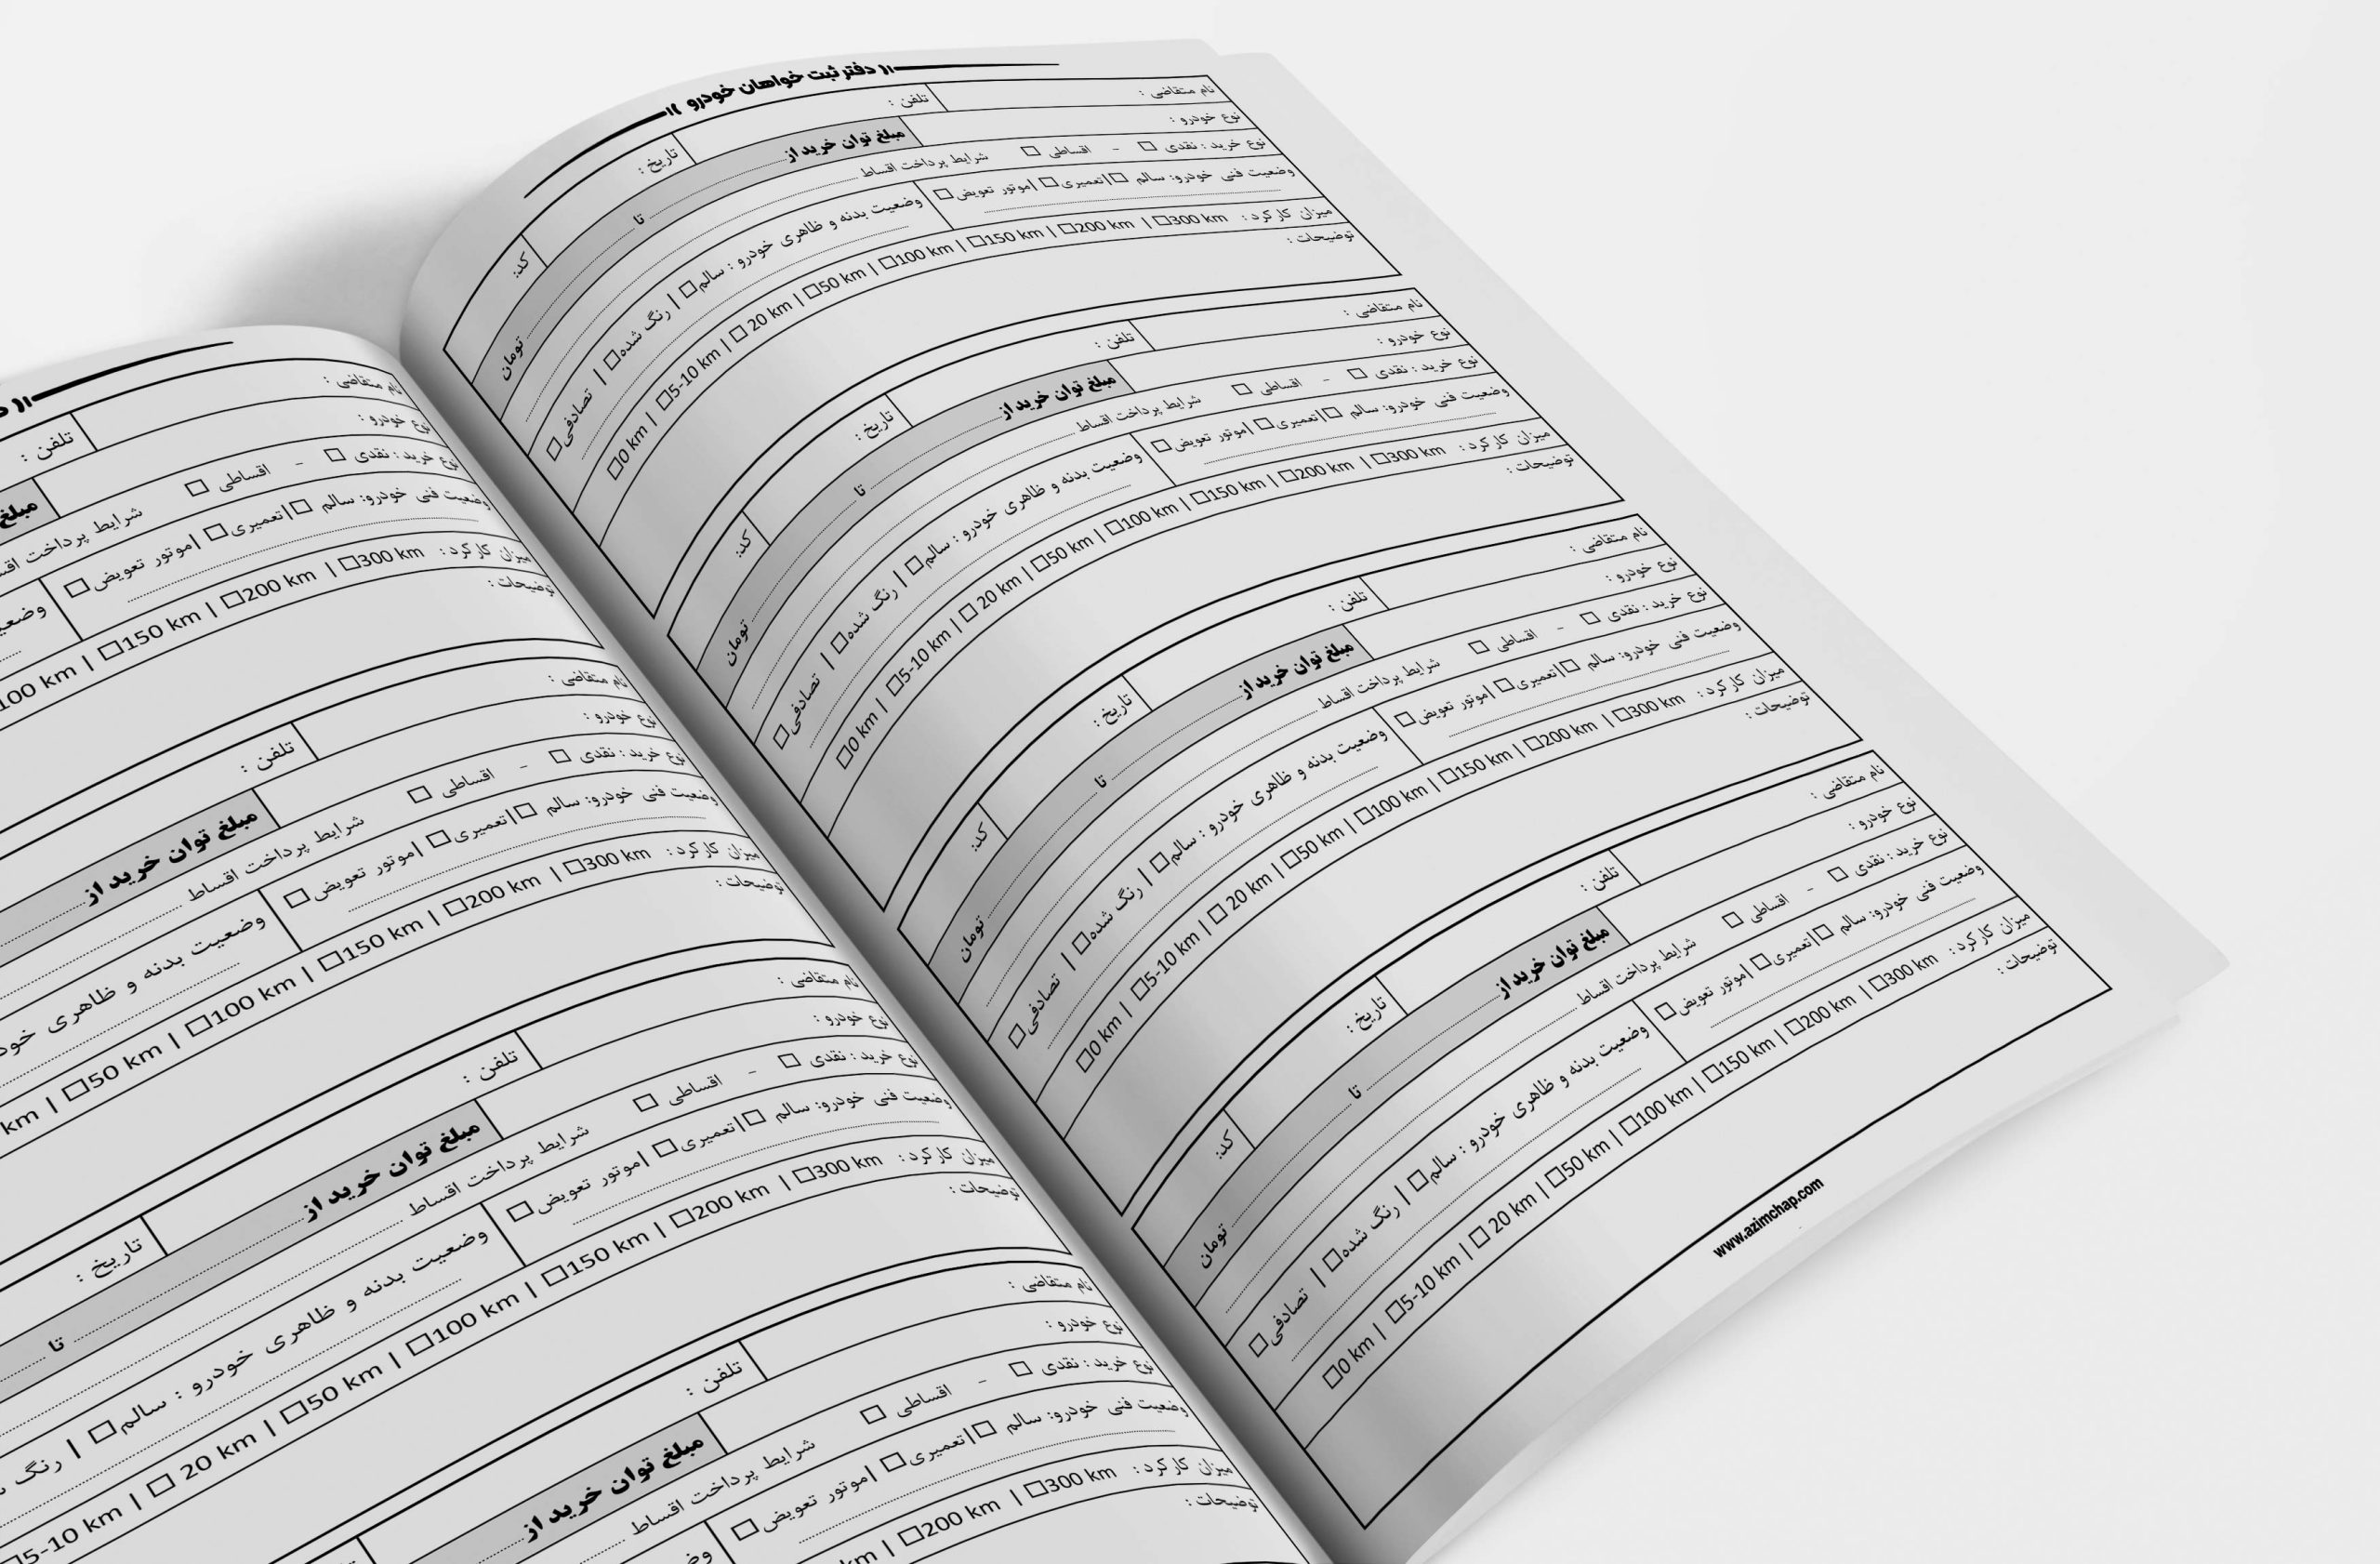 دفتر ثبت خواهان خودرو
نام متقاضی : تلفن : تاریخ : کد:
نوع خودرو : مبلغ توان خرید از تا تومان
نوع خرید : نقدی □ - اقساطی □ شرایط پرداخت اقساط
وضعیت فنی خودرو: سالم □|تعمیری□ |موتور تعویض□ وضعیت بدنه و ظاهری خودرو : سالم□ | رنگ شده□ | تصادفی□
میزان کارکرد : □0 km | □5-10 km | □ 20 km | □50 km | □100 km | □150 km | □200 km | □300 km
توضیحات :
نام متقاضی : تلفن : تاریخ : کد:
نوع خودرو : مبلغ توان خرید از تا تومان
نوع خرید : نقدی □ - اقساطی □ شرایط پرداخت اقساط
وضعیت فنی خودرو: سالم □|تعمیری□ |موتور تعویض□ وضعیت بدنه و ظاهری خودرو : سالم□ | رنگ شده□ | تصادفی□
میزان کارکرد : □0 km | □5-10 km | □ 20 km | □50 km | □100 km | □150 km | □200 km | □300 km
توضیحات :
نام متقاضی : تلفن : تاریخ : کد:
نوع خودرو : مبلغ توان خرید از تا تومان
نوع خرید : نقدی □ - اقساطی □ شرایط پرداخت اقساط
وضعیت فنی خودرو: سالم □|تعمیری□ |موتور تعویض□ وضعیت بدنه و ظاهری خودرو : سالم□ | رنگ شده□ | تصادفی□
میزان کارکرد : □0 km | □5-10 km | □ 20 km | □50 km | □100 km | □150 km | □200 km | □300 km
توضیحات :
نام متقاضی : تلفن : تاریخ : کد:
نوع خودرو : مبلغ توان خرید از تا تومان
نوع خرید : نقدی □ - اقساطی □ شرایط پرداخت اقساط
وضعیت فنی خودرو: سالم □|تعمیری□ |موتور تعویض□ وضعیت بدنه و ظاهری خودرو : سالم□ | رنگ شده□ | تصادفی□
میزان کارکرد : □0 km | □5-10 km | □ 20 km | □50 km | □100 km | □150 km | □200 km | □300 km
توضیحات :
www.azimchap.com
نام متقاضی : تلفن :
نوع خودرو : مبلغ
نوع خرید : نقدی □ - اقساطی □ شرایط پرداخت
وضعیت فنی خودرو: سالم □|تعمیری□ |موتور تعویض□
میزان کارکرد : 100 km | □150 km | □200 km | □300 km
توضیحات :
نام متقاضی : تلفن :
نوع خودرو : مبلغ توان خرید از
نوع خرید : نقدی □ - اقساطی □ شرایط پرداخت اقساط
وضعیت فنی خودرو: سالم □|تعمیری□ |موتور تعویض□ وضعیت بدنه و ظاهری
میزان کارکرد : km | □50 km | □100 km | □150 km | □200 km | □300 km
توضیحات :
نام متقاضی : تلفن : تاریخ :
نوع خودرو : مبلغ توان خرید از تا
نوع خرید : نقدی □ - اقساطی □ شرایط پرداخت اقساط
وضعیت فنی خودرو: سالم □|تعمیری□ |موتور تعویض□ وضعیت بدنه و ظاهری خودرو : سالم□ | رنگ
میزان کارکرد : □5-10 km | □ 20 km | □50 km | □100 km | □150 km | □200 km | □300 km
توضیحات :
نام متقاضی : تلفن :
نوع خودرو : مبلغ توان خرید از
نوع خرید : نقدی □ - اقساطی □ شرایط پرداخت اقساط
وضعیت فنی خودرو: سالم □|تعمیری□ |موتور تعویض□
میزان کارکرد : km | □200 km | □300 km
توضیحات :